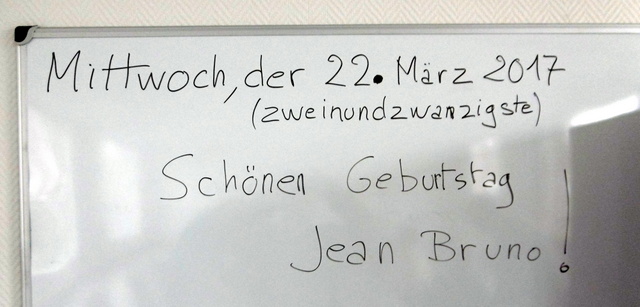 Mittwoch, der 22. März 2017
(zweinundzwanzigste)
Schönen Geburtstag
Jean Bruno!